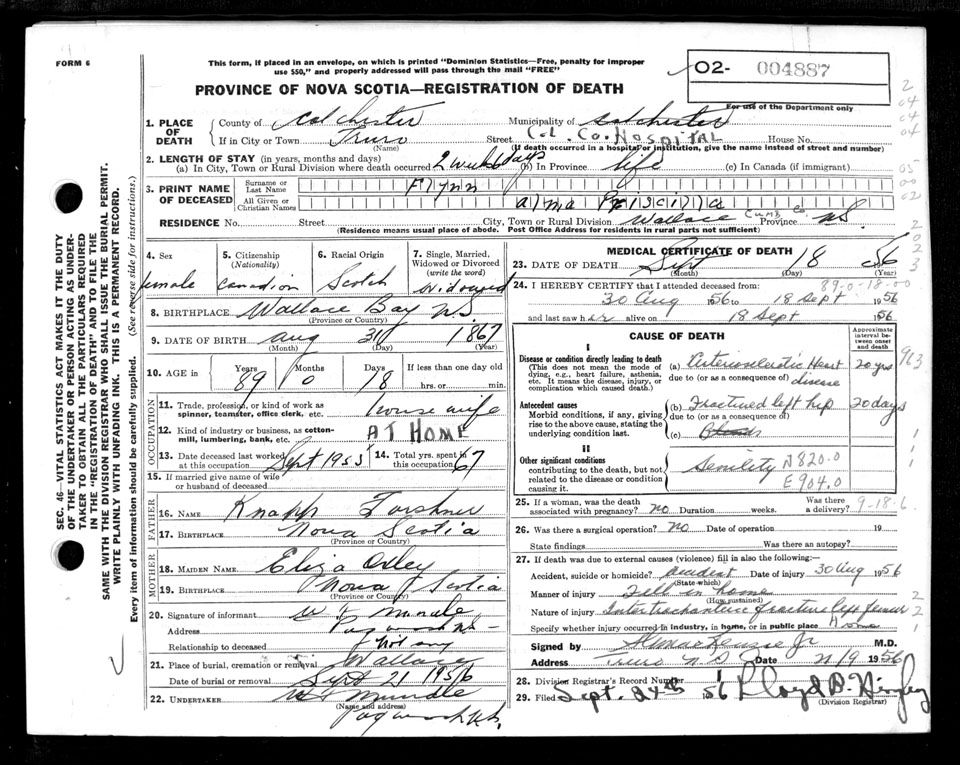 FORM 6
This form, if placed in an envelope, on which is printed "Dominion Statistics—Free, penalty for improper
use $50," and properly addressed will pass through the mail "FREE"
02- 004887
For use of the Department only
PROVINCE OF NOVA SCOTIA—REGISTRATION OF DEATH
1. PLACE OF DEATH
County of Colchester Municipality of Colchester
If in City or Town Truro Street Col. Co. Hospital House No.
(Name) (If death occurred in a hospital or institution, give the name instead of street and number)
2. LENGTH OF STAY (in years, months and days)
(a) In City, Town or Rural Division where death occurred 2 weeks days (b) In Province life (c) In Canada (if immigrant)
3. PRINT NAME OF DECEASED
Surname or Last Name Flynn
All Given or Christian Names alma
RESIDENCE No. Street City, Town or Rural Division Wallace Cumb Co. Province NS
(Residence means usual place of abode. Post Office Address for residents in rural parts not sufficient)
4. Sex female
5. Citizenship (Nationality) Canadian
6. Racial Origin Scotch
7. Single, Married, Widowed or Divorced (write the word) Widowed
8. BIRTHPLACE Wallace Bay N.S.
(Province or Country)
9. DATE OF BIRTH aug 31 1867
(Month) (Day) (Year)
10. AGE Years 89 Months 0 Days 18 If less than one day old
hrs. or min.
OCCUPATION
11. Trade, profession, or kind of work as spinner, teamster, office clerk, etc. house wife
12. Kind of industry or business, as cotton-mill, lumbering, bank, etc. AT HOME
13. Date deceased last worked at this occupation Sept 1955
14. Total yrs. spent in this occupation 67
15. If married give name of wife or husband of deceased
FATHER
16. NAME Knapp
17. BIRTHPLACE Nova Scotia
(Province or Country)
MOTHER
18. MAIDEN NAME Eliza Oxley
19. BIRTHPLACE Nova Scotia
(Province or Country)
20. Signature of informant
Address Pugwash NS
Relationship to deceased Not any
21. Place of burial, cremation or removal Wallace
Date of burial or removal Sept 21 1956
22. UNDERTAKER
(Name and address)
Pugwash N.S.
MEDICAL CERTIFICATE OF DEATH
23. DATE OF DEATH 18 1956
(Day) (Year)
89-0-18-00
24. I HEREBY CERTIFY that I attended deceased from:
30 Aug 1956 to 18 Sept 1956
and last saw her alive on 18 Sept 1956
CAUSE OF DEATH
Approximate interval between onset and death
I
Disease or condition directly leading to death
(This does not mean the mode of dying, e.g., heart failure, asthenia, etc. It means the disease, injury, or complication which caused death.)
(a) Arteriosclerotic Heart disease 20 yrs
due to (or as a consequence of)
Antecedent causes
Morbid conditions, if any, giving rise to the above cause, stating the underlying condition last.
(b) Fractured left hip 20 days
due to (or as a consequence of)
(c)
II
Other significant conditions
contributing to the death, but not related to the disease or condition causing it.
Senility N820.0
E904.0
25. If a woman, was the death associated with pregnancy? No Duration weeks. Was there a delivery?
26. Was there a surgical operation? No Date of operation 19
State findings Was there an autopsy?
27. If death was due to external causes (violence) fill in also the following:—
Accident, suicide or homicide? accident Date of injury 30 Aug 1956
(State which)
Manner of injury Fell in home
(How sustained)
Nature of injury Intertrochanteric fracture left femur
Specify whether injury occurred in industry, in home, or in public place Home
Signed by M.D.
Address Truro N.S. Date 1956
28. Division Registrar's Record Number
29. Filed Sept. 24th 56
(Division Registrar)
SEC. 46—VITAL STATISTICS ACT MAKES IT THE DUTY
OF THE UNDERTAKER OR PERSON ACTING AS UNDER-
TAKER TO OBTAIN ALL THE PARTICULARS REQUIRED
IN THE "REGISTRATION OF DEATH" AND TO FILE THE
SAME WITH THE DIVISION REGISTRAR WHO SHALL ISSUE THE BURIAL PERMIT.
WRITE PLAINLY WITH UNFADING INK. THIS IS A PERMANENT RECORD.
Every item of information should be carefully supplied. (See reverse side for instructions.)